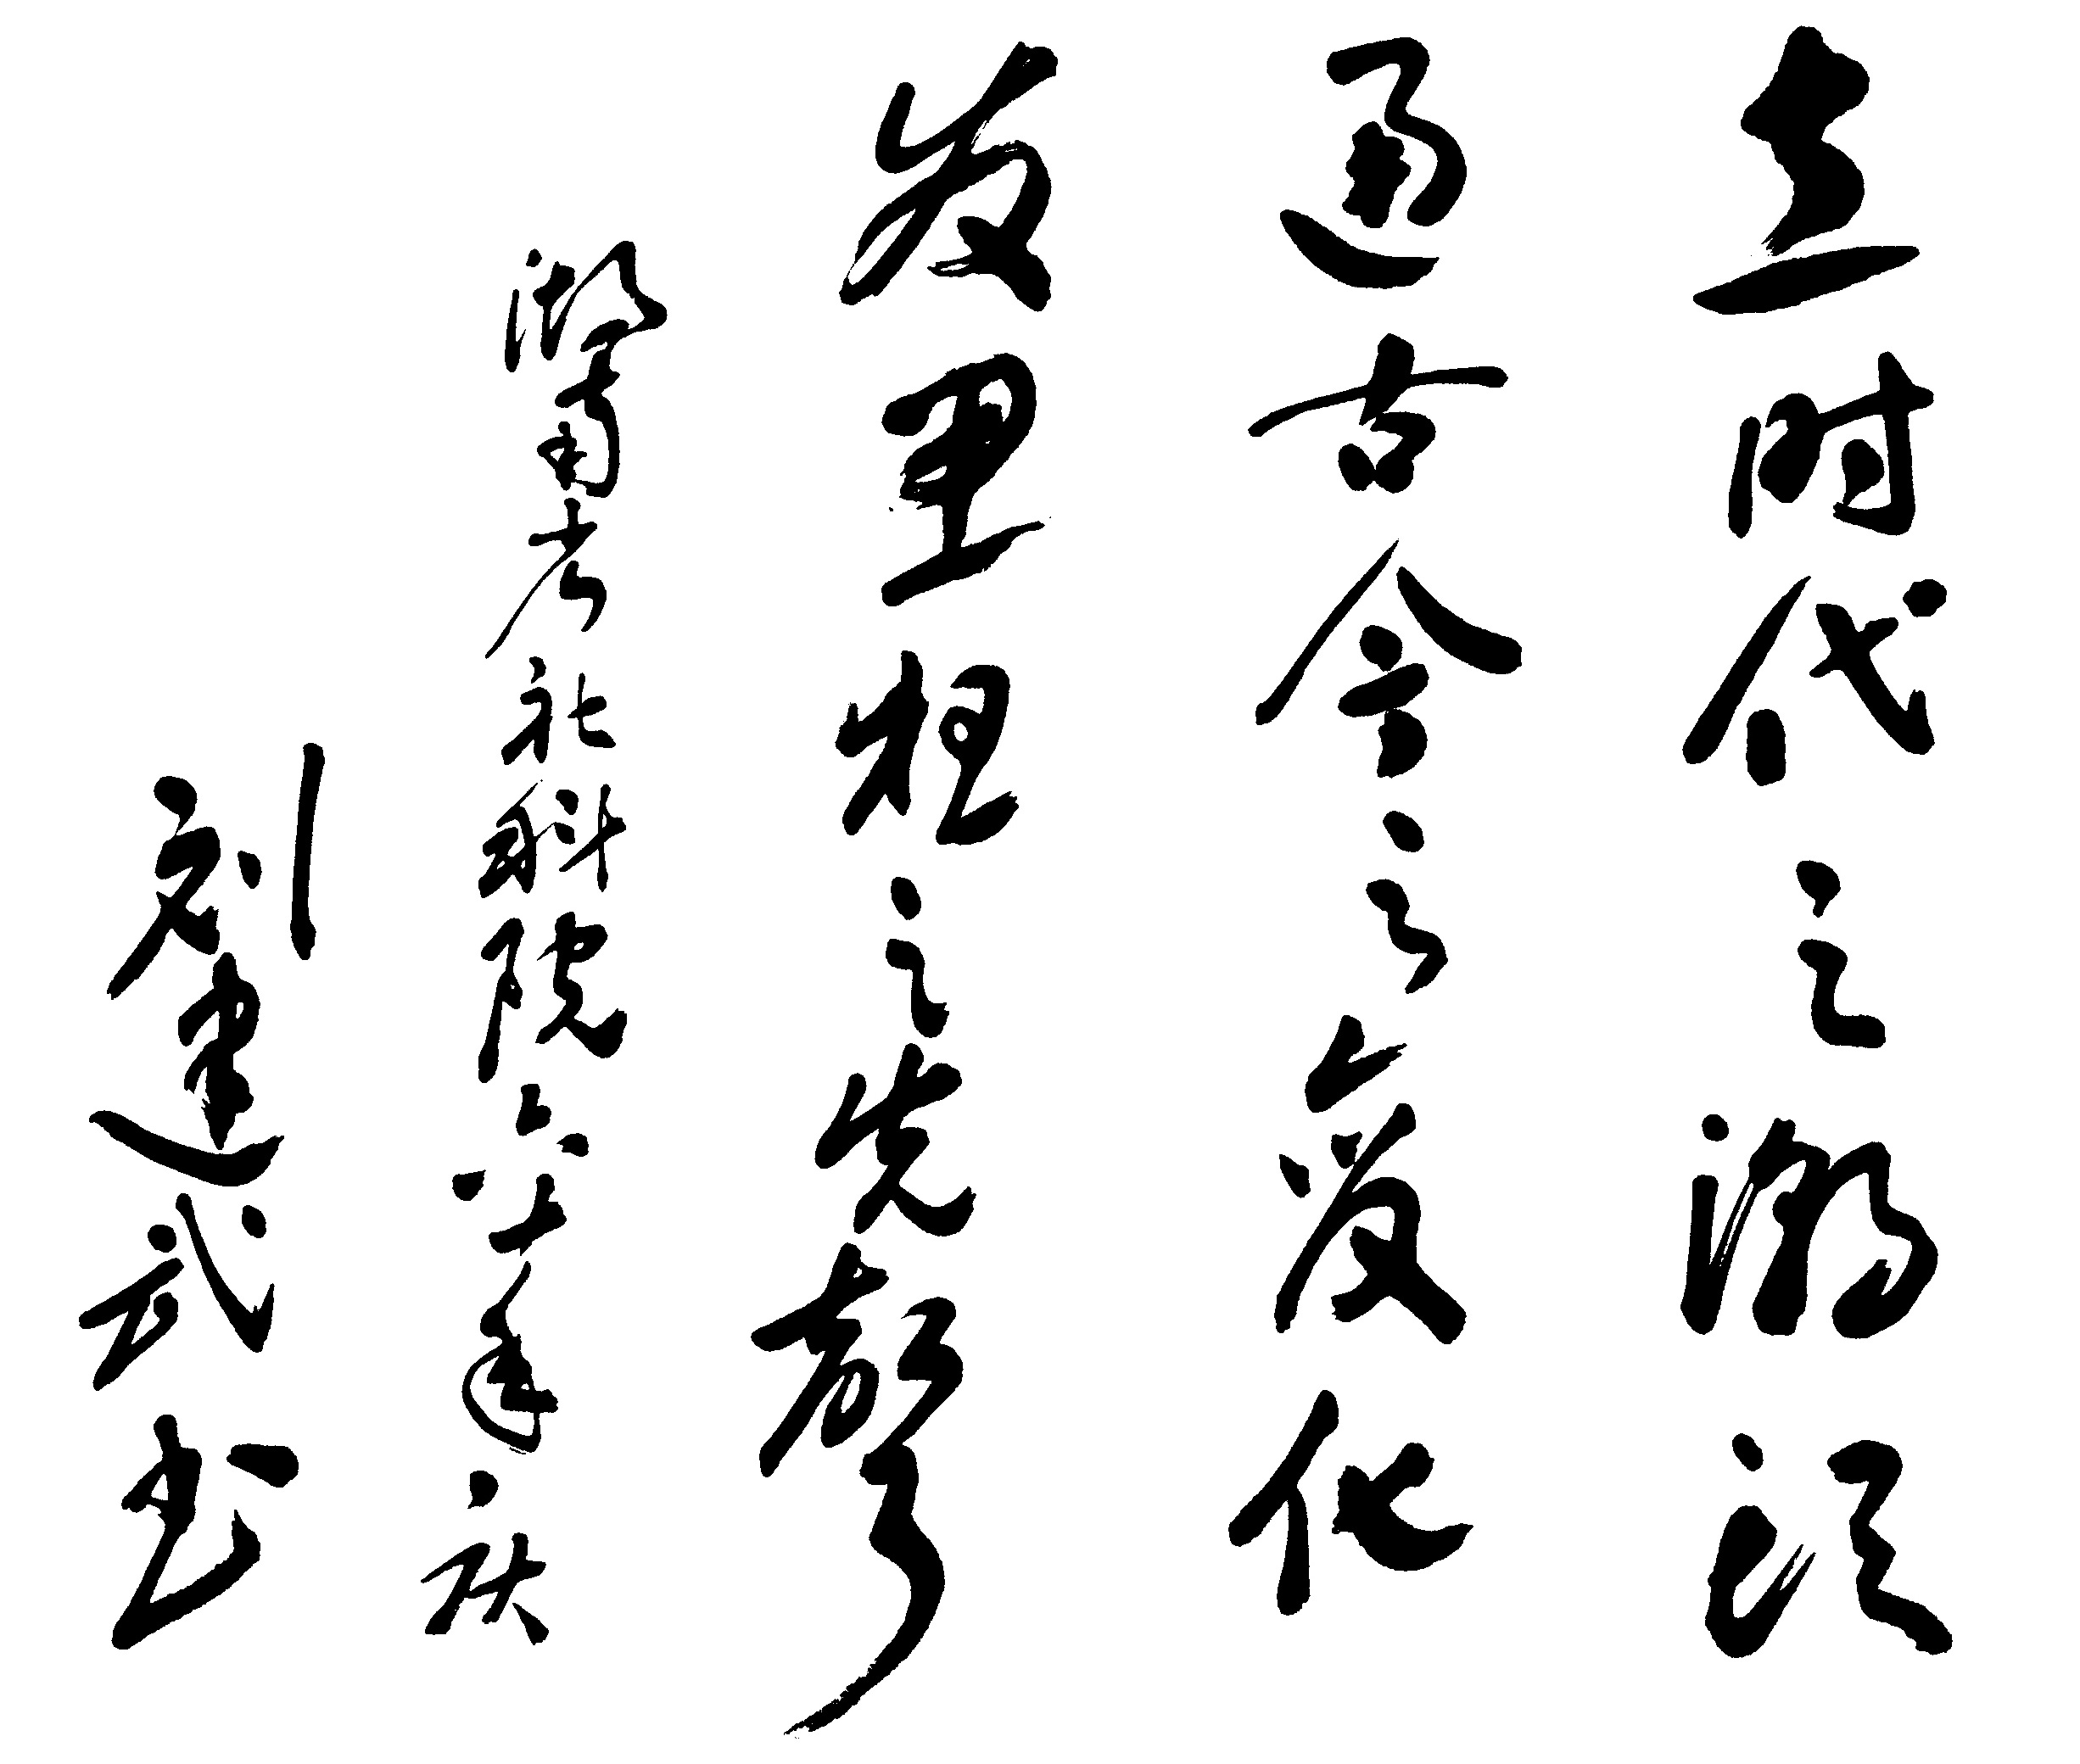 立时代之潮头
通古今之变化
发思想之先声
湖南省社科院六十年庆
刘建武书